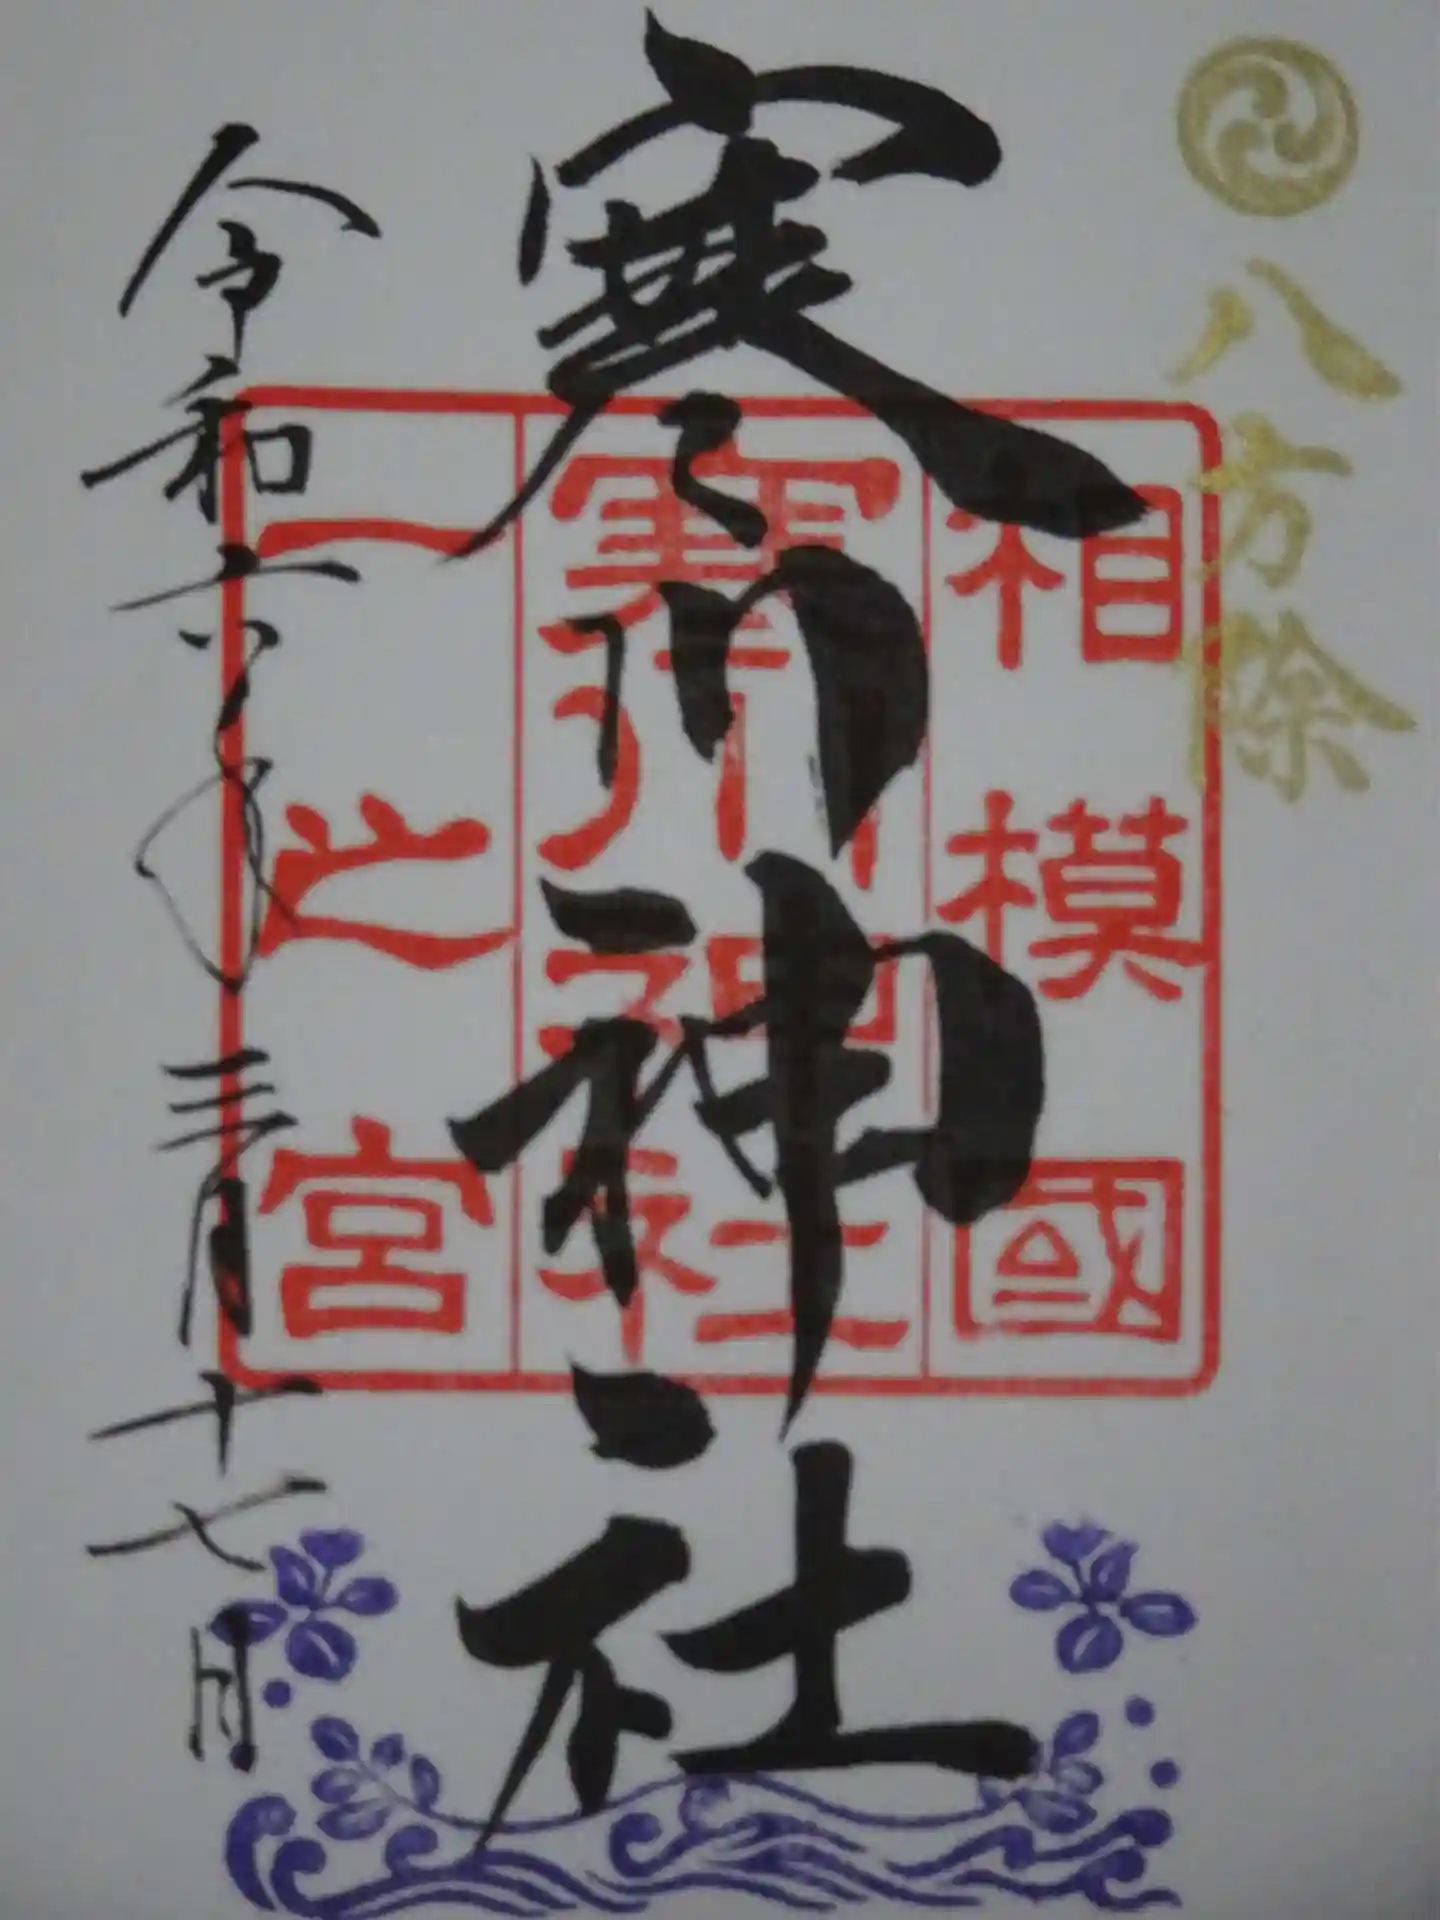 八方除
相模國
寒川神社
一之宮
寒川神社
令和六年三月十七日